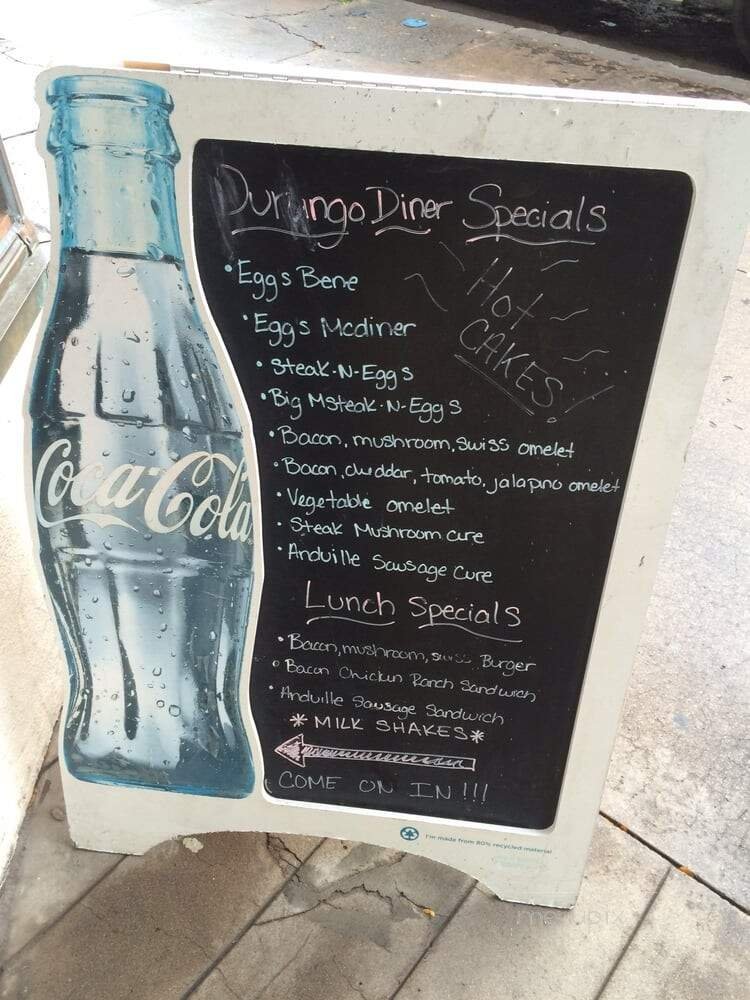 Durango Diner Specials
Hot
CAKES!
• Eggs Bene
• Eggs Mcdiner
• Steak-N-Eggs
• Big Msteak-N-Eggs
• Bacon, mushroom, swiss omelet
• Bacon, cheddar, tomato, jalapino omelet
• Vegetable omelet
• Steak Mushroom cure
• Anduille Sausage Cure
Lunch Specials
• Bacon, mushroom, swiss Burger
• Bacon Chicken Ranch Sandwich
• Anduille Sausage Sandwich
* MILK SHAKES *
COME ON IN!!!
Coca-Cola
I'm made from 80% recycled material